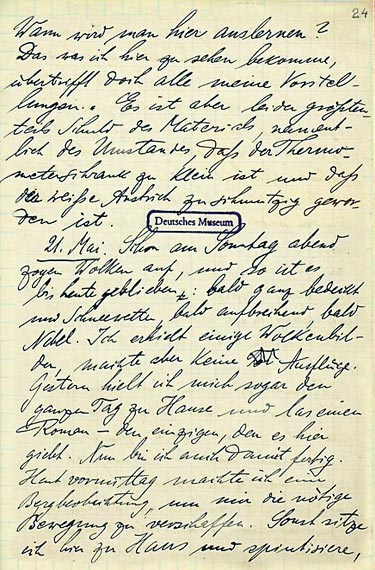 24
Wann wird man hier auslernen?
Das was ich hier zu sehen bekomme,
übertrifft doch alle meine Vorstel-
lungen. Es ist aber leider größten-
teils Schuld des Materials, nament-
lich des Umstandes daß der Thermo-
meterschrank zu klein ist und daß
der weiße Anstrich zu schmutzig gewor-
den ist.
Deutsches Museum
21. Mai. Schon am Sonntag abend
zogen Wolken auf, und so ist es
bis heute geblieben: bald ganz bedeckt
und Schneewetter, bald aufbrechend, bald
Nebel. Ich erhielt einige Wolkenbil-
der, machte aber keine Ausflüge.
Gestern hielt ich mich sogar den
ganzen Tag zu Hause und las einen
Roman – den einzigen, den es hier
giebt. Nun bin ich auch damit fertig.
Heut vormittag machte ich eine
Bergbeobachtung, um mir die nötige
Bewegung zu verschaffen. Sonst sitze
ich hier zu Haus und spintisiere,